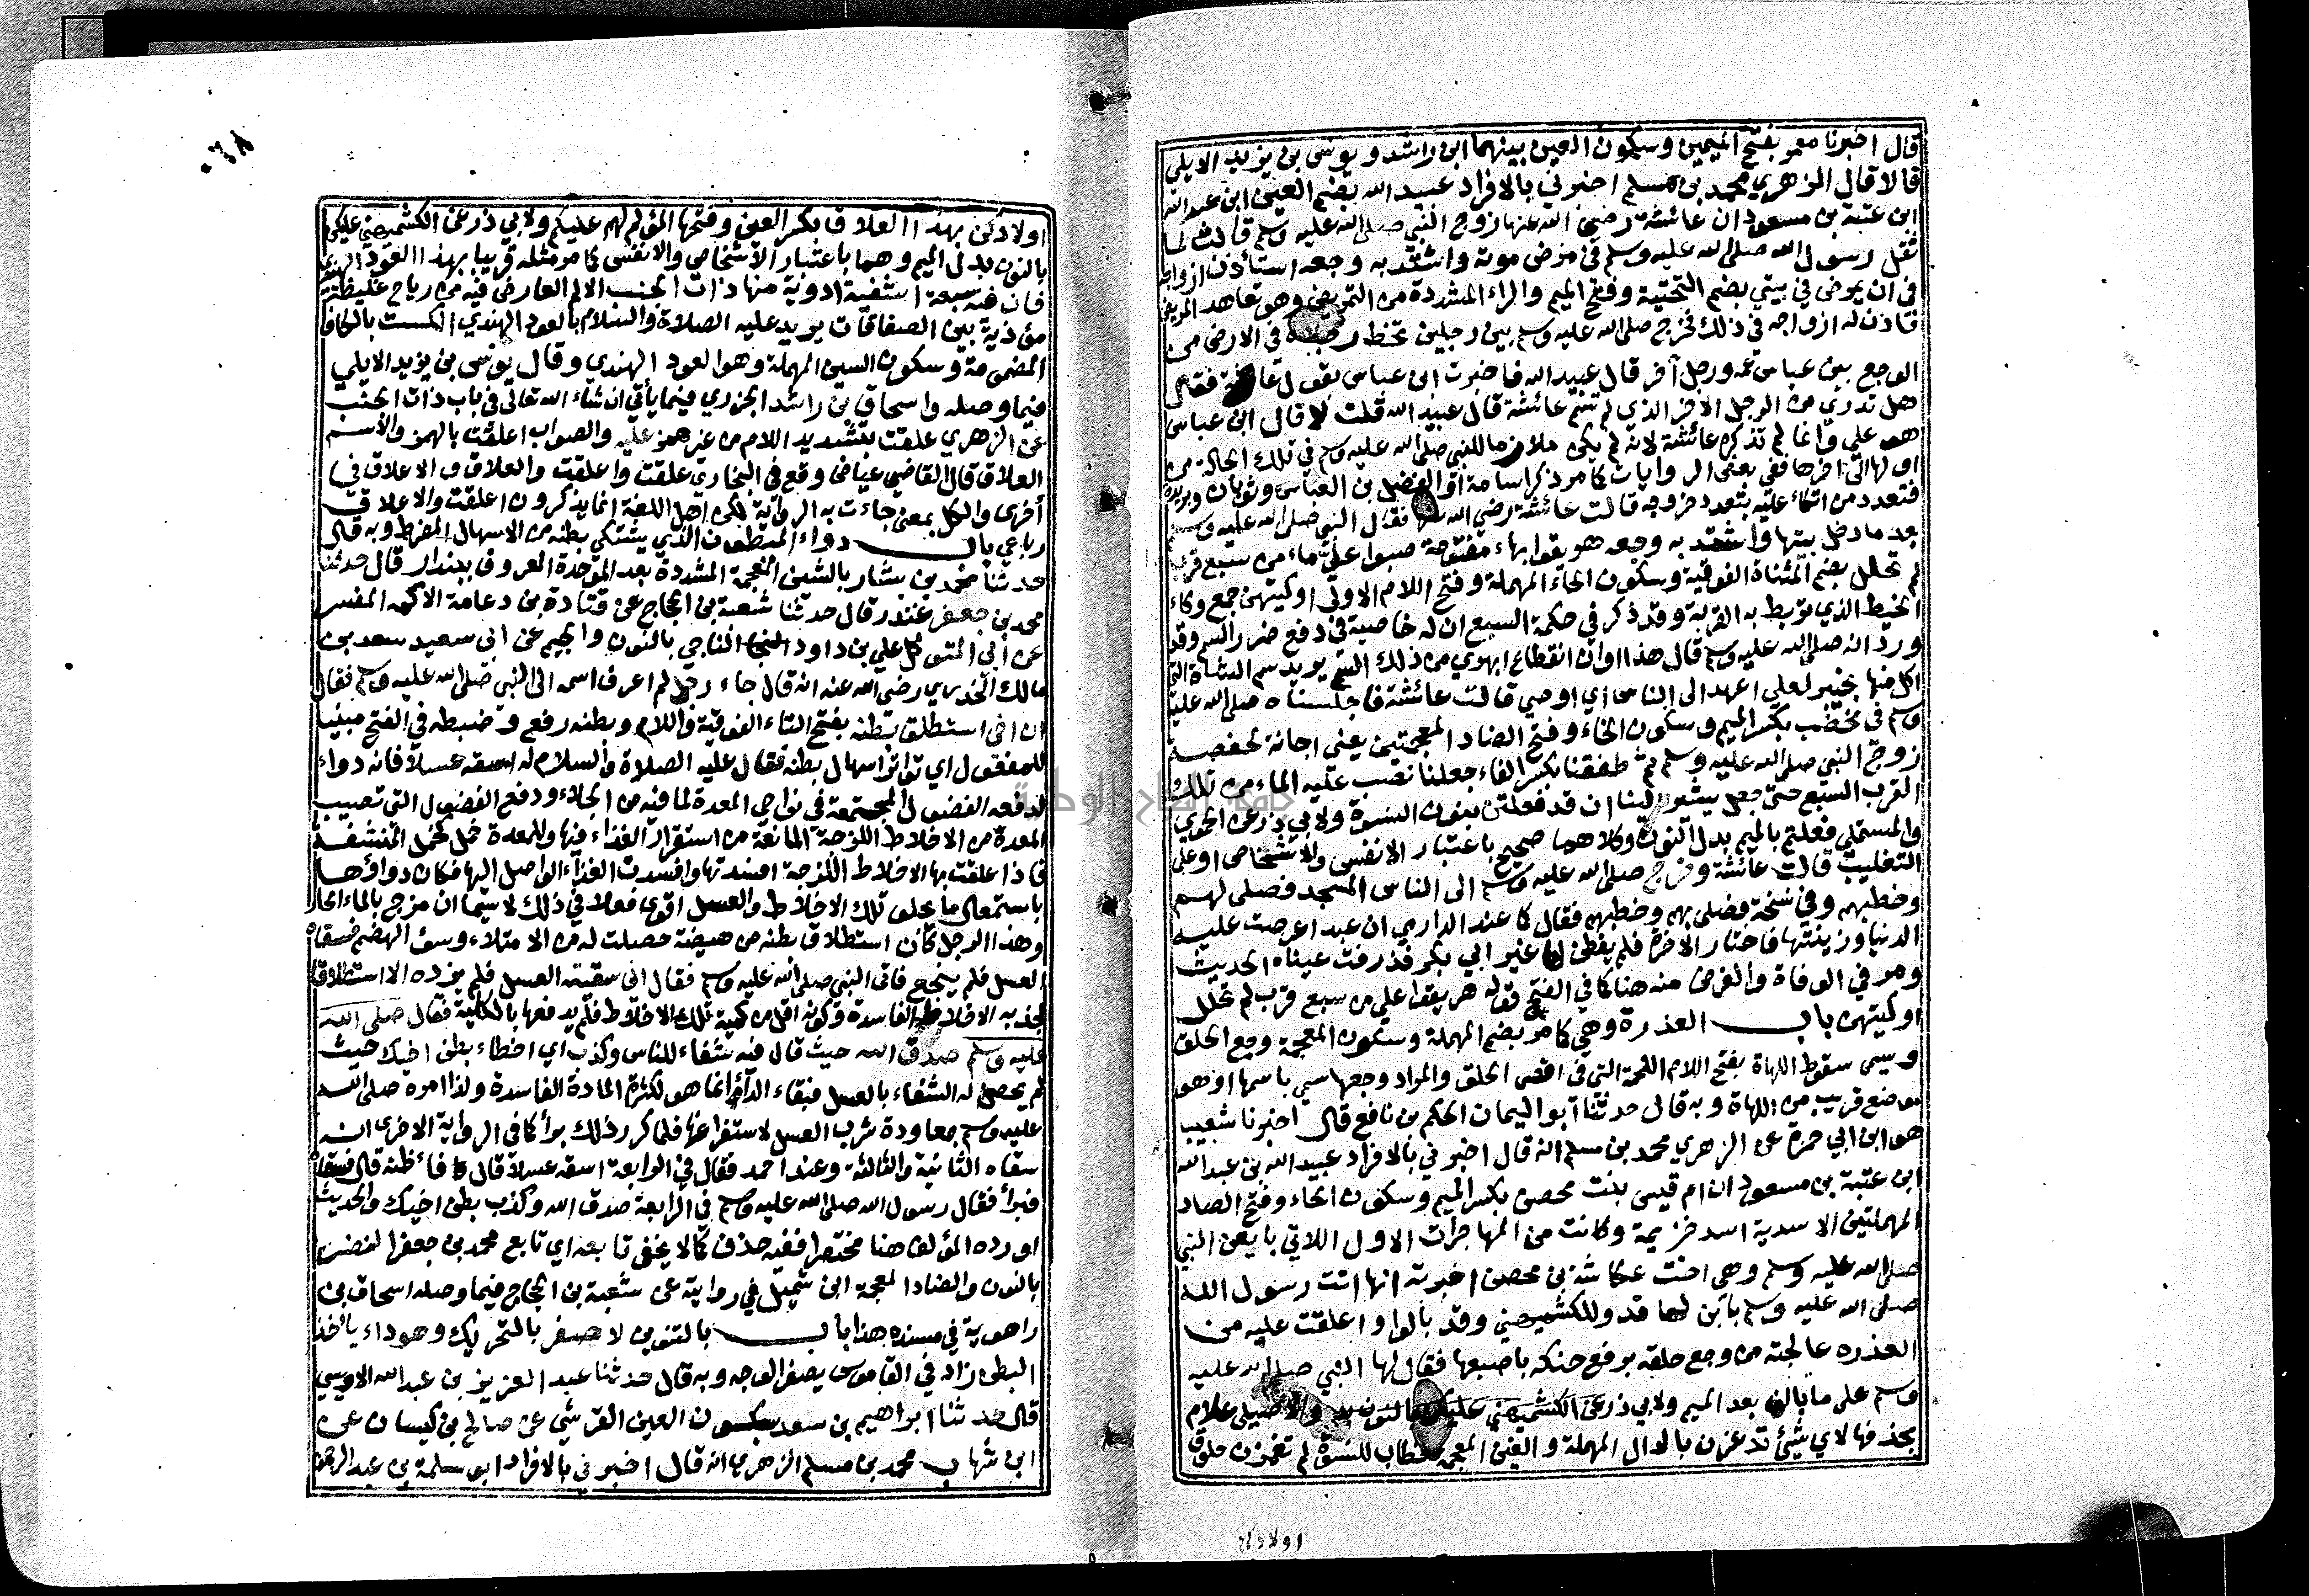 قال اخبرنا معمر بفتح الميمين وسكون العين بينهما ابن راشد ويونس بن يزيد الايلي
قالا قال الزهري محمد بن مسلم اخبرني بالافراد عبيد الله بضم العين ابن عبد الله
ابن عتبة بن مسعود ان عائشة رضي الله عنها زوج النبي صلى الله عليه وسلم قالت لما
ثقل رسول الله صلى الله عليه وسلم في مرض موته واشتد به وجعه استأذن ازواجه
في ان يمرض في بيتي بضم التحتية وفتح الميم والراء المشددة من التمريض وهو تعاهد المريض
فأذن له ازواجه في ذلك فخرج صلى الله عليه وسلم بين رجلين تخط رجلاه في الارض من
الوجع بين عباس عمه ورجل آخر قال عبيد الله فاخبرت ابن عباس بقول عائشة فقال
هل تدري من الرجل الآخر الذي لم تسم عائشة قال عبيد الله قلت لا قال ابن عباس
هو علي وانما لم تذكره عائشة لانه لم يكن ملازما للنبي صلى الله عليه وسلم في تلك الحالة من
اولها الى اخرها ففي بعض الروايات كما مر ذكر اسامة او الفضل بن العباس وثوبان وبريرة
فتعدد من اتكأ عليه بتعدد خروجه قالت عائشة رضي الله عنها فقال النبي صلى الله عليه وسلم
بعد ما دخل بيتها واشتد به وجعه هريقوا بهاء مفتوحة صبوا علي ماء من سبع قرب
لم تحلل بضم المثناة الفوقية وسكون الحاء المهملة وفتح اللام الاولى اوكيتهن جمع وكاء
الخيط الذي يربط به القربة وقد ذكر في حكمة السبع ان له خاصية في دفع ضرر السم وقد
ورد انه صلى الله عليه وسلم قال هذا اوان انقطاع ابهري من ذلك السم يريد سم الشاة التي
اكل منها بخيبر لعلي اعهد الى الناس اي اوصي قالت عائشة فاجلسناه صلى الله عليه
وسلم في مخضب بكسر الميم وسكون الخاء وفتح الضاد المعجمتين يعني اجانة لحفصة
زوج النبي صلى الله عليه وسلم ثم طفقنا بكسر الفاء جعلنا نصب عليه الماء من تلك
القرب السبع حتى جعل يشير الينا ان قد فعلتن بنون النسوة ولابي ذر عن الحموي
والمستملي فعلتم بالميم بدل النون وكلاهما صحيح باعتبار الانفس والاشخاص او على
التغليب قالت عائشة وخرج صلى الله عليه وسلم الى الناس المسجد فصلى لهم
وخطبهم وفي نسخة فصلى بهم وخطبهم فقال كما عند الدارمي ان عبدا عرضت عليه
الدنيا وزينتها فاختار الاخرة فلم يفطن لها غير ابي بكر فذرفت عيناه الحديث
ومر في الوفاة والغرض منه هنا كما في الفتح قوله هريقوا علي من سبع قرب لم تحلل
اوكيتهن باب العذرة وهي كما مر بضم المهملة وسكون المعجمة وجع الحلق
وسمى سقوط اللهاة بفتح اللام اللحمة التي في اقصى الحلق والمراد وجعها سمي باسمها او هو
موضع قريب من اللهاة وبه قال حدثنا ابو اليمان الحكم بن نافع قال اخبرنا شعيب
هو ابن ابي حمزة عن الزهري محمد بن مسلم انه قال اخبرني بالافراد عبيد الله بن عبد الله
ابن عتبة بن مسعود ان ام قيس بنت محصن بكسر الميم وسكون الحاء وفتح الصاد
المهملتين الاسدية اسد خزيمة وكانت من المهاجرات الاول اللاتي بايعن النبي
صلى الله عليه وسلم وهي اخت عكاشة بن محصن اخبرته انها اتت رسول الله
صلى الله عليه وسلم بابن لها قد وللكشميهني وقد بالواو اعلقت عليه من
العذره عالجته من وجع حلقه برفع حنكه باصبعها فقال لها النبي صلى الله عليه
وسلم على ما بالف بعد الميم ولابي ذر عن الكشميهني عليكن بالنون والاصيلي علام
بحذفها لاي شيئ تدغرن بالدال المهملة والغين المعجمة خطاب للنسوة لم تغمزن حلوق
اولادكن
اولادكن بهذا العلاق بكسر العين وفتحها المؤلم لهم عليكم ولابي ذر عن الكشميهني عليكن
بالنون بدل الميم وهما باعتبار الاشخاص والانفس كما مر مثله قريبا بهذا العود الهندي
فان فيه سبعة اشفية ادوية منها ذات الجنب الالم العارض فيه من رياح غليظة
مؤذية بين الصفاقات يريد عليه الصلاة والسلام بالعود الهندي الكست بالكاف
المضمومة وسكون السين المهملة وهو العود الهندي وقال يونس بن يزيد الايلي
فيما وصله واسحاق بن راشد الجزري فيما يأتي ان شاء الله تعالى في باب ذات الجنب
عن الزهري علقت بتشديد اللام من غير همز عليه والصواب اعلقت بالهمز والاسم
العلاق قال القاضي عياض وقع في البخاري علقت واعلقت والعلاق والاعلاق في
أخرى والكل بمعنى جاءت به الرواية لكن اهل اللغة انما يذكرون اعلقت والاعلاق
رباعي باب دواء المبطون الذي يشتكي بطنه من الاسهال المفرط وبه قال
حدثنا محمد بن بشار بالشين المعجمة المشددة بعد الموحدة المعروف ببندار قال حدثنا
محمد بن جعفر غندر قال حدثنا شعبة بن الحجاج عن قتادة بن دعامة الاكمه المفسر
عن أبي المتوكل علي بن داود الناجي بالنون والجيم عن ابي سعيد سعد بن
مالك الخدري رضي الله عنه انه قال جاء رجل لم اعرف اسمه الى النبي صلى الله عليه وسلم فقال
ان اخي استطلق بطنه بفتح التاء الفوقية واللام وبطنه رفع وضبطه في الفتح مبنيا
للمفعول اي تواتر اسهال بطنه فقال عليه الصلاة والسلام له اسقه عسلا فانه دواء
لدفعه الفضول المجتمعة في نواحي المعدة لما فيه من الجلاء ودفع الفضول التي تصيب
المعدة من الاخلاط اللزجة المانعة من استقرار الغذاء فيها وللمعدة خمل كخمل المنشفة
فاذا علقت بها الاخلاط اللزجة افسدتها وافسدت الغذاء الواصل اليها فكان دواؤها
باستعمال ما يجلو تلك الاخلاط والعسل اقوى فعلا في ذلك لا سيما ان مزج بالماء الحار
وهذا الرجل كان استطلاق بطنه من هيضة حصلت له من الامتلاء وسوء الهضم فسقاه
العسل فلم ينجع فاتى النبي صلى الله عليه وسلم فقال اني سقيته العسل فلم يزده الا استطلاقا
لجذبه الاخلاط الفاسدة وكونه اقل من كمية تلك الاخلاط فلم يدفعها بالكلية فقال صلى الله
عليه وسلم صدق الله حيث قال فيه شفاء للناس وكذب اي اخطاء بطن اخيك حيث
لم يحصل له الشفاء بالعسل فبقاء الداء انما هو لكثرة المادة الفاسدة ولذا امره صلى الله
عليه وسلم بمعاودة شرب العسل لاستفراغها فلما كرر ذلك برأ كما في الرواية الاخرى انه
سقاه الثانية والثالثة وعند احمد فقال في الرابعة اسقه عسلا قال فاظنه قال فسقاه
فبرأ فقال رسول الله صلى الله عليه وسلم في الرابعة صدق الله وكذب بطن اخيك والحديث
اورده المؤلف هنا مختصرا ففيه حذف كما لا يخفى تابعه اي تابع محمد بن جعفر النضر
بالنون والضاد المعجمة ابن شميل في روايته عن شعبة بن الحجاج فيما وصله اسحاق بن
راهوية في مسنده هذا باب بالتنوين لا صفر بالتحريك وهو داء ياخذ
البطن زاد في القاموس يصفر الوجه وبه قال حدثنا عبد العزيز بن عبد الله الاويسي
قال حدثنا ابراهيم بن سعد بسكون العين القرشي عن صالح بن كيسان عن
ابن شهاب محمد بن مسلم الزهري انه قال اخبرني بالافراد ابو سلمة بن عبد الرحمن